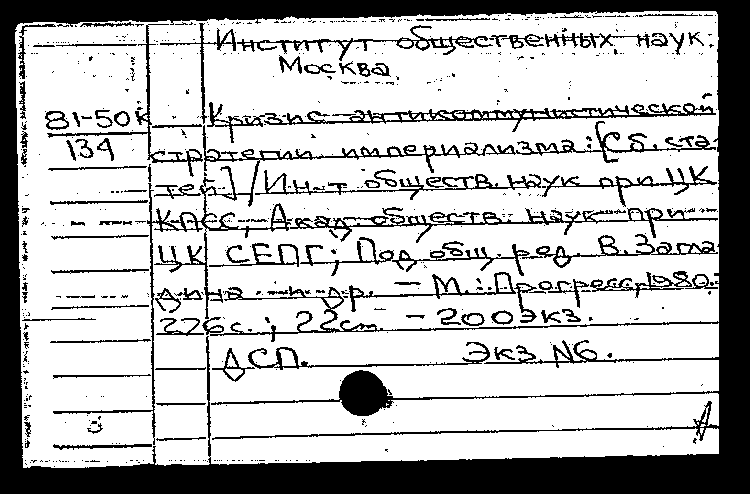 Институт общественных наук.
Москва.
81-50к
134
Кризис антикоммунистической
стратегии империализма: [Сб. ста-
тей] / Ин-т обществ. наук при ЦК
КПСС, Акад. обществ. наук при
ЦК СЕПГ; Под общ. ред. В. Загла-
дина и др. - М.: Прогресс, 1980. -
276с.; 22см - 200экз.
ДСП. Экз. №6.